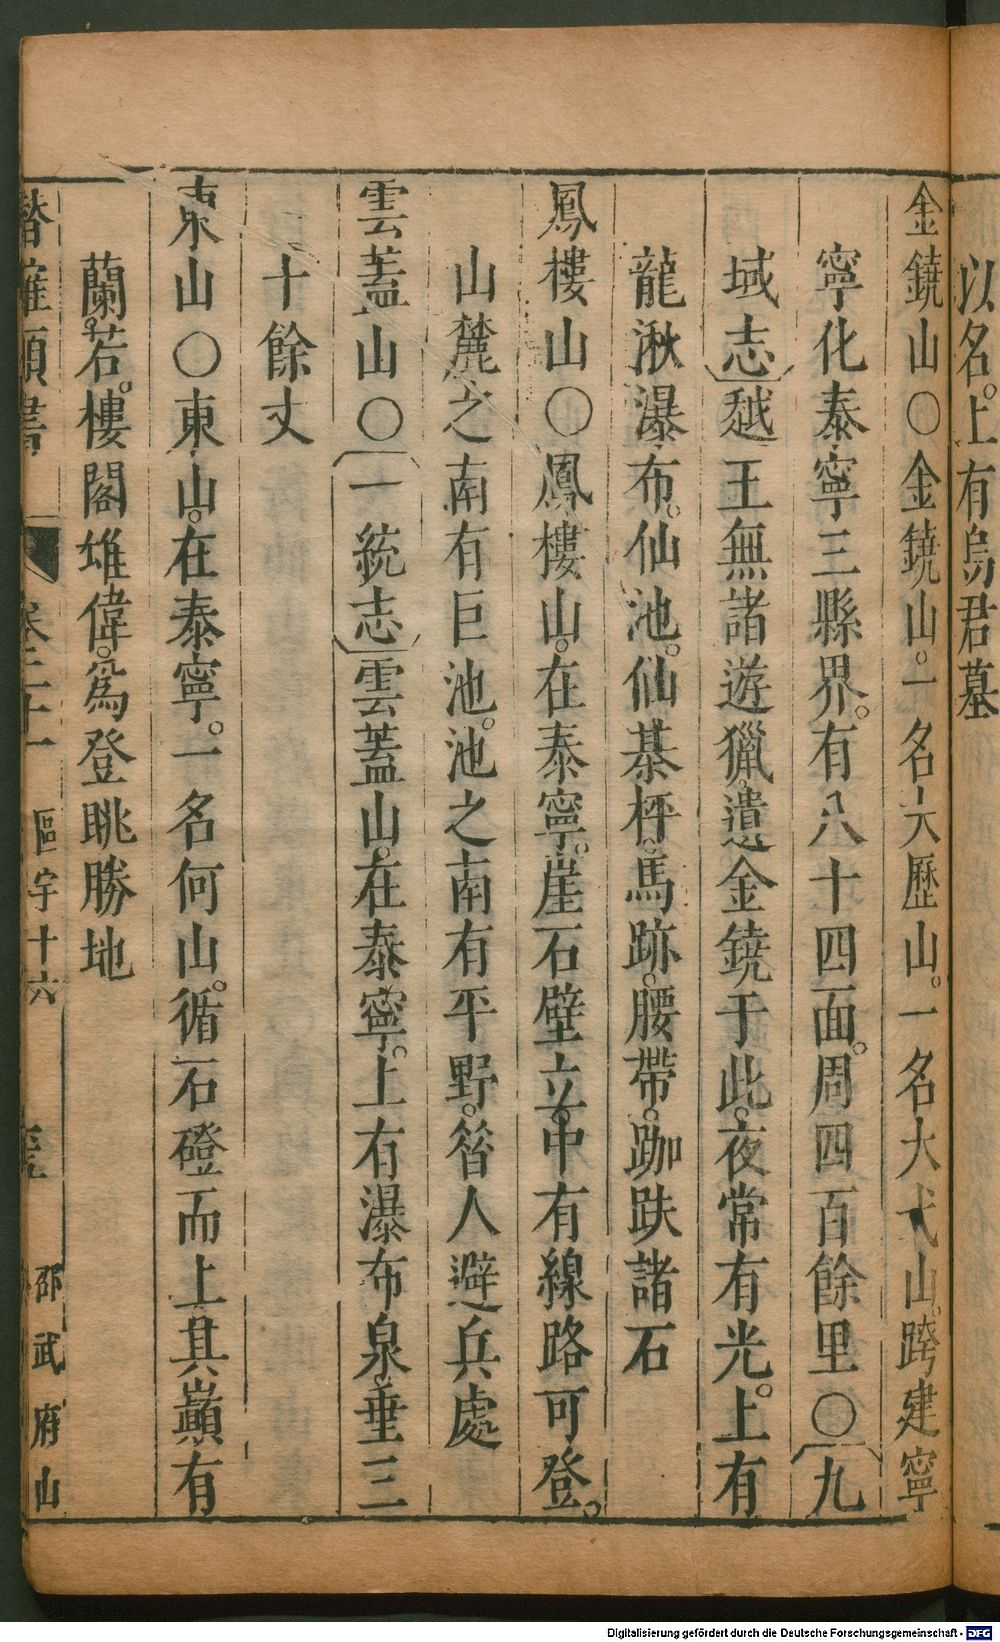 以名。上有烏君墓
金鐃山〇金鐃山。一名大歷山。一名大弋山。跨建寧
寧化泰寧三縣界。有八十四面。周四百餘里〇〔九
域志〕越王無諸遊獵。遺金鐃于此。夜常有光。上有
龍湫瀑布。仙池。仙棊枰。馬跡。腰帶。跏趺諸石
鳳樓山〇鳳樓山。在泰寧。崖石壁立。中有線路可登。
山麓之南有巨池。池之南有平野。昝人避兵處
雲蓋山〇〔一統志〕雲蓋山。在泰寧。上有瀑布泉。垂三
十餘丈
東山〇東山。在泰寧。一名何山。循石磴而上其巔有
蘭若。樓閣雄偉。為登眺勝地
潛確類書 卷三十一 區宇十六 邵武府山
Digitalisierung gefördert durch die Deutsche Forschungsgemeinschaft - DFG